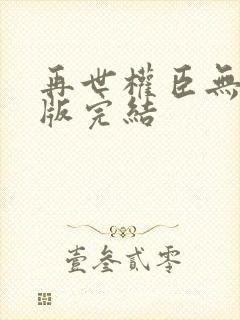 再世權臣無
版完結
壹叁貳零